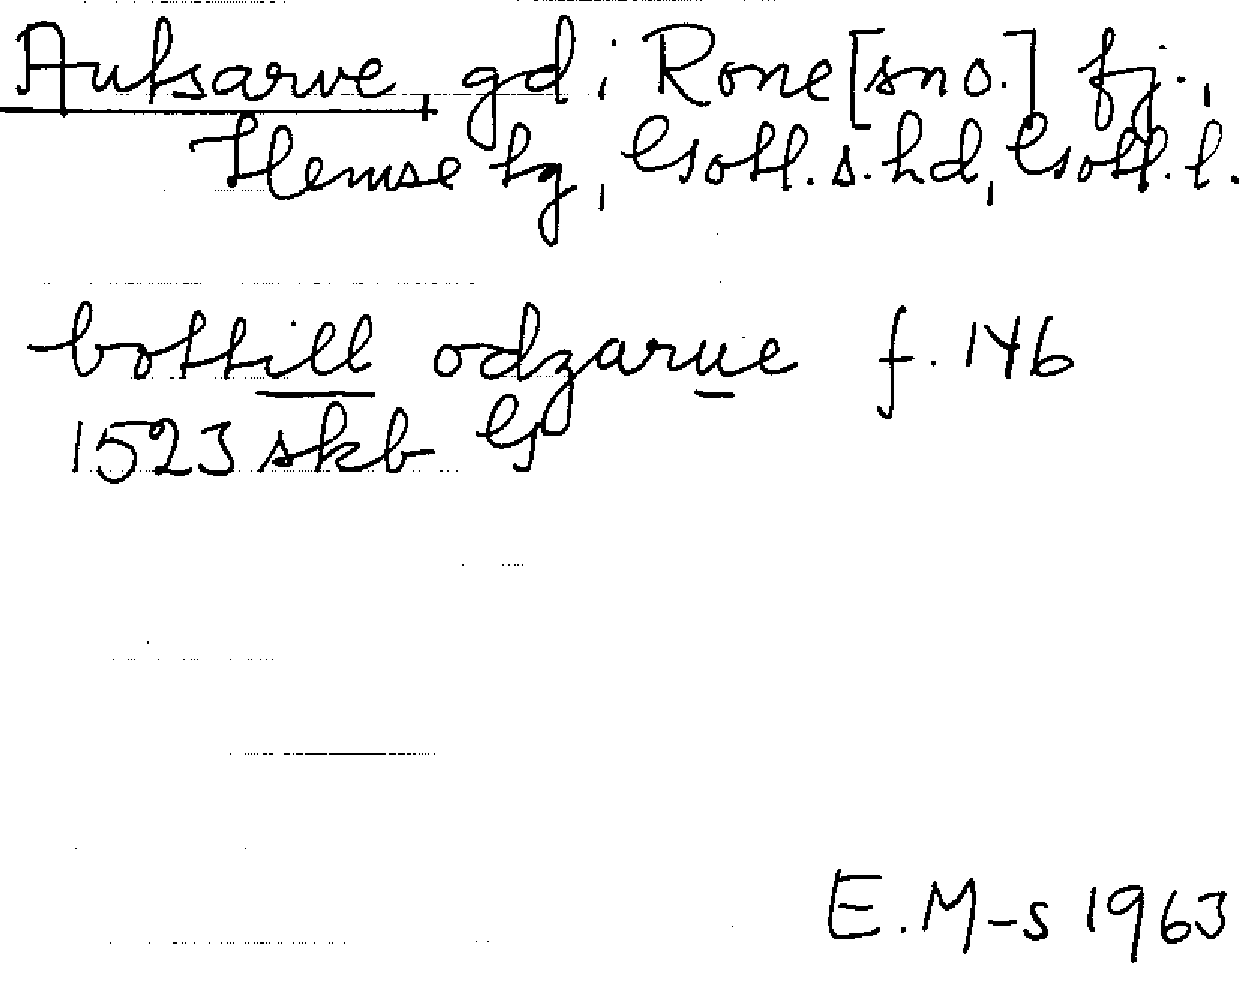 Autsarve, gd i Rone [sn o.] tj.,
Hemse tg, Gotl. s. hd, Gotl. l.
bottill odzarue f. 146
1523 skb G
E. M-s 1963